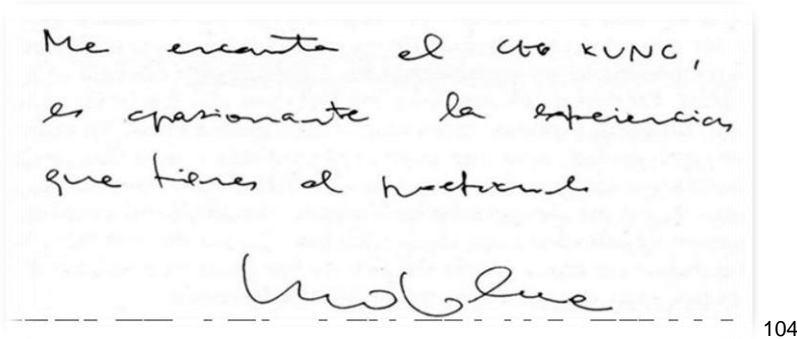 Me encanta el CHI KUNG,
es apasionante la experiencia
que tienes al practicarlo
104